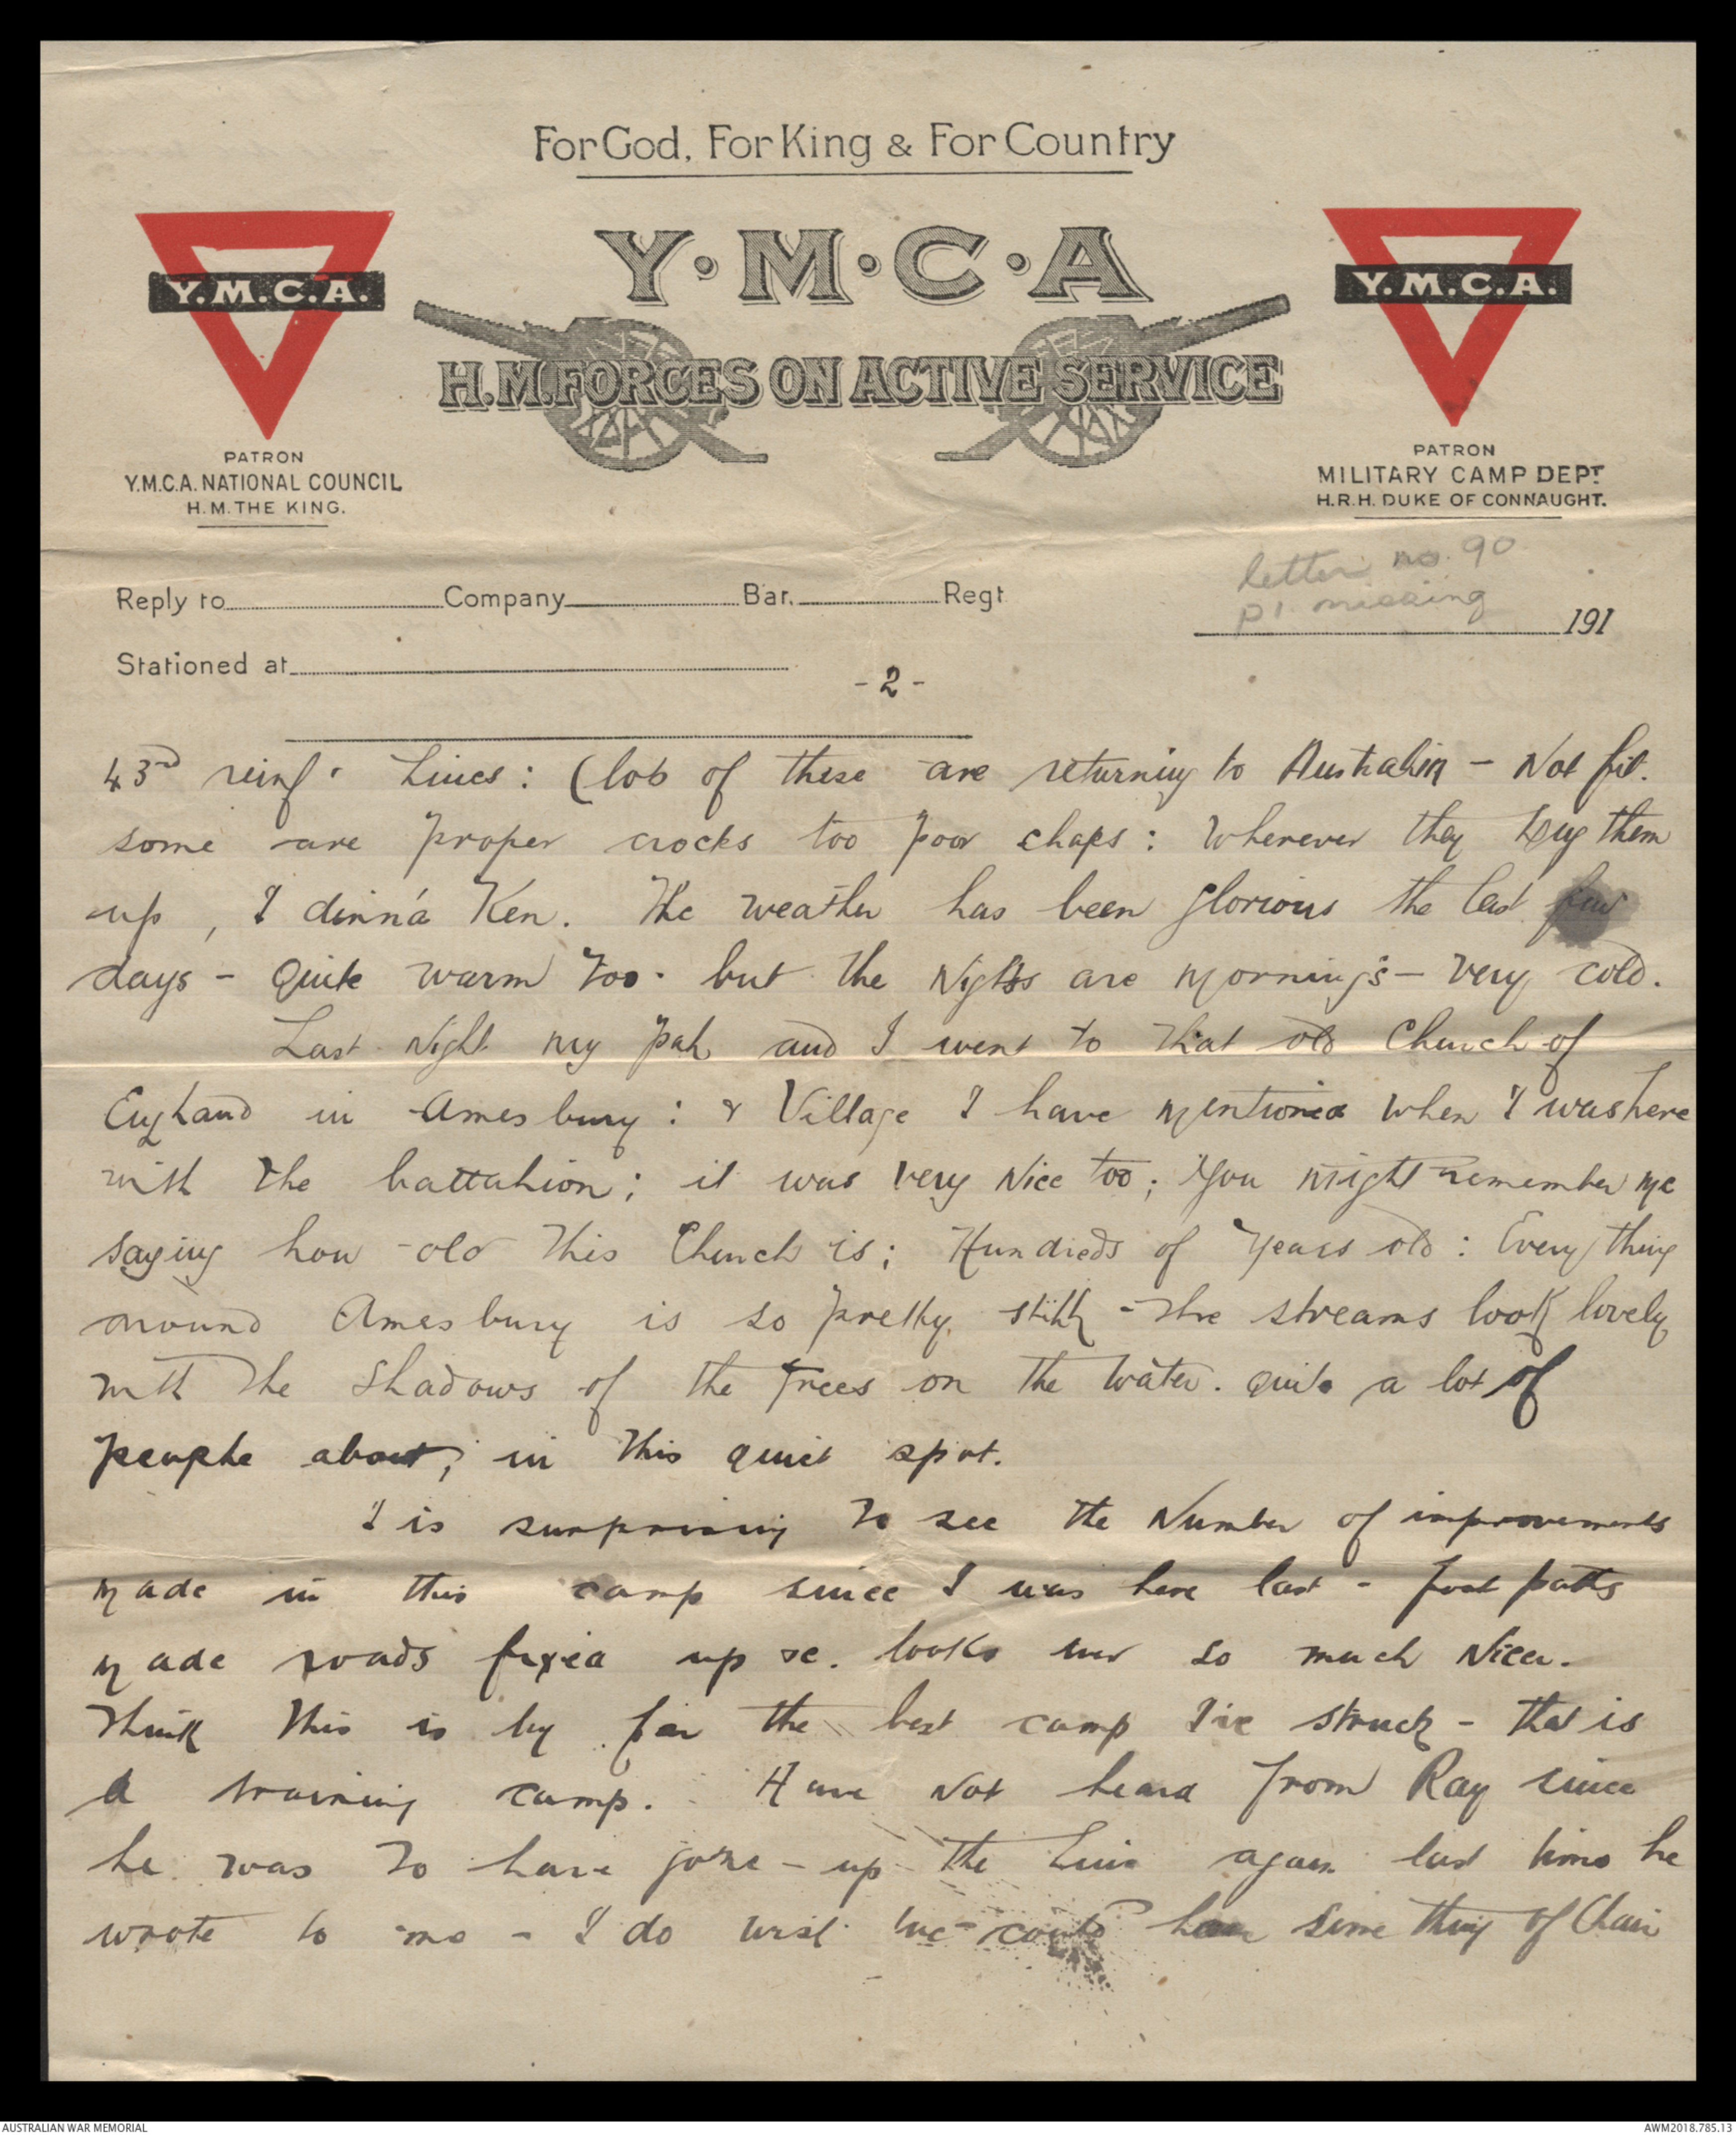 For God, For King & For Country
Y·M·C·A
H.M. FORCES ON ACTIVE SERVICE
Y.M.C.A.
Y.M.C.A.
PATRON
Y.M.C.A. NATIONAL COUNCIL
H.M. THE KING.
PATRON
MILITARY CAMP DEPT
H.R.H. DUKE OF CONNAUGHT.
letter no. 90
p1. missing
Reply to Company Bat. Regt
191
Stationed at
- 2 -
43rd reinf. Lines: (lot of these are returning to Australia - Not fit.
some are proper crocks too poor chaps: Wherever they dug them
up, I dinna Ken. The weather has been glorious the last few
days - Quite warm too. but the Nights are Mornings - very cold.
Last Night my pal and I went to that old Church of
England in Amesbury: & Village I have mentioned when I was here
with the battalion; it was very Nice too; You might remember me
saying how old this Church is; Hundreds of Years old: Every thing
around Amesbury is so pretty, still - the streams look lovely
with the shadows of the trees on the water. quite a lot of
people about; in this quiet spot.
I is surprising to see the Number of improvements
made in this camp since I was here last - foot paths
made roads fixed up &c. looks ever so much Nicer.
Think this is by far the best camp I've struck - that is
a training camp. Have Not heard from Ray since
he was to have gone - up - the Line again last time he
wrote to me - I do wish we could hear some thing of
AUSTRALIAN WAR MEMORIAL
AWM2018.785.13